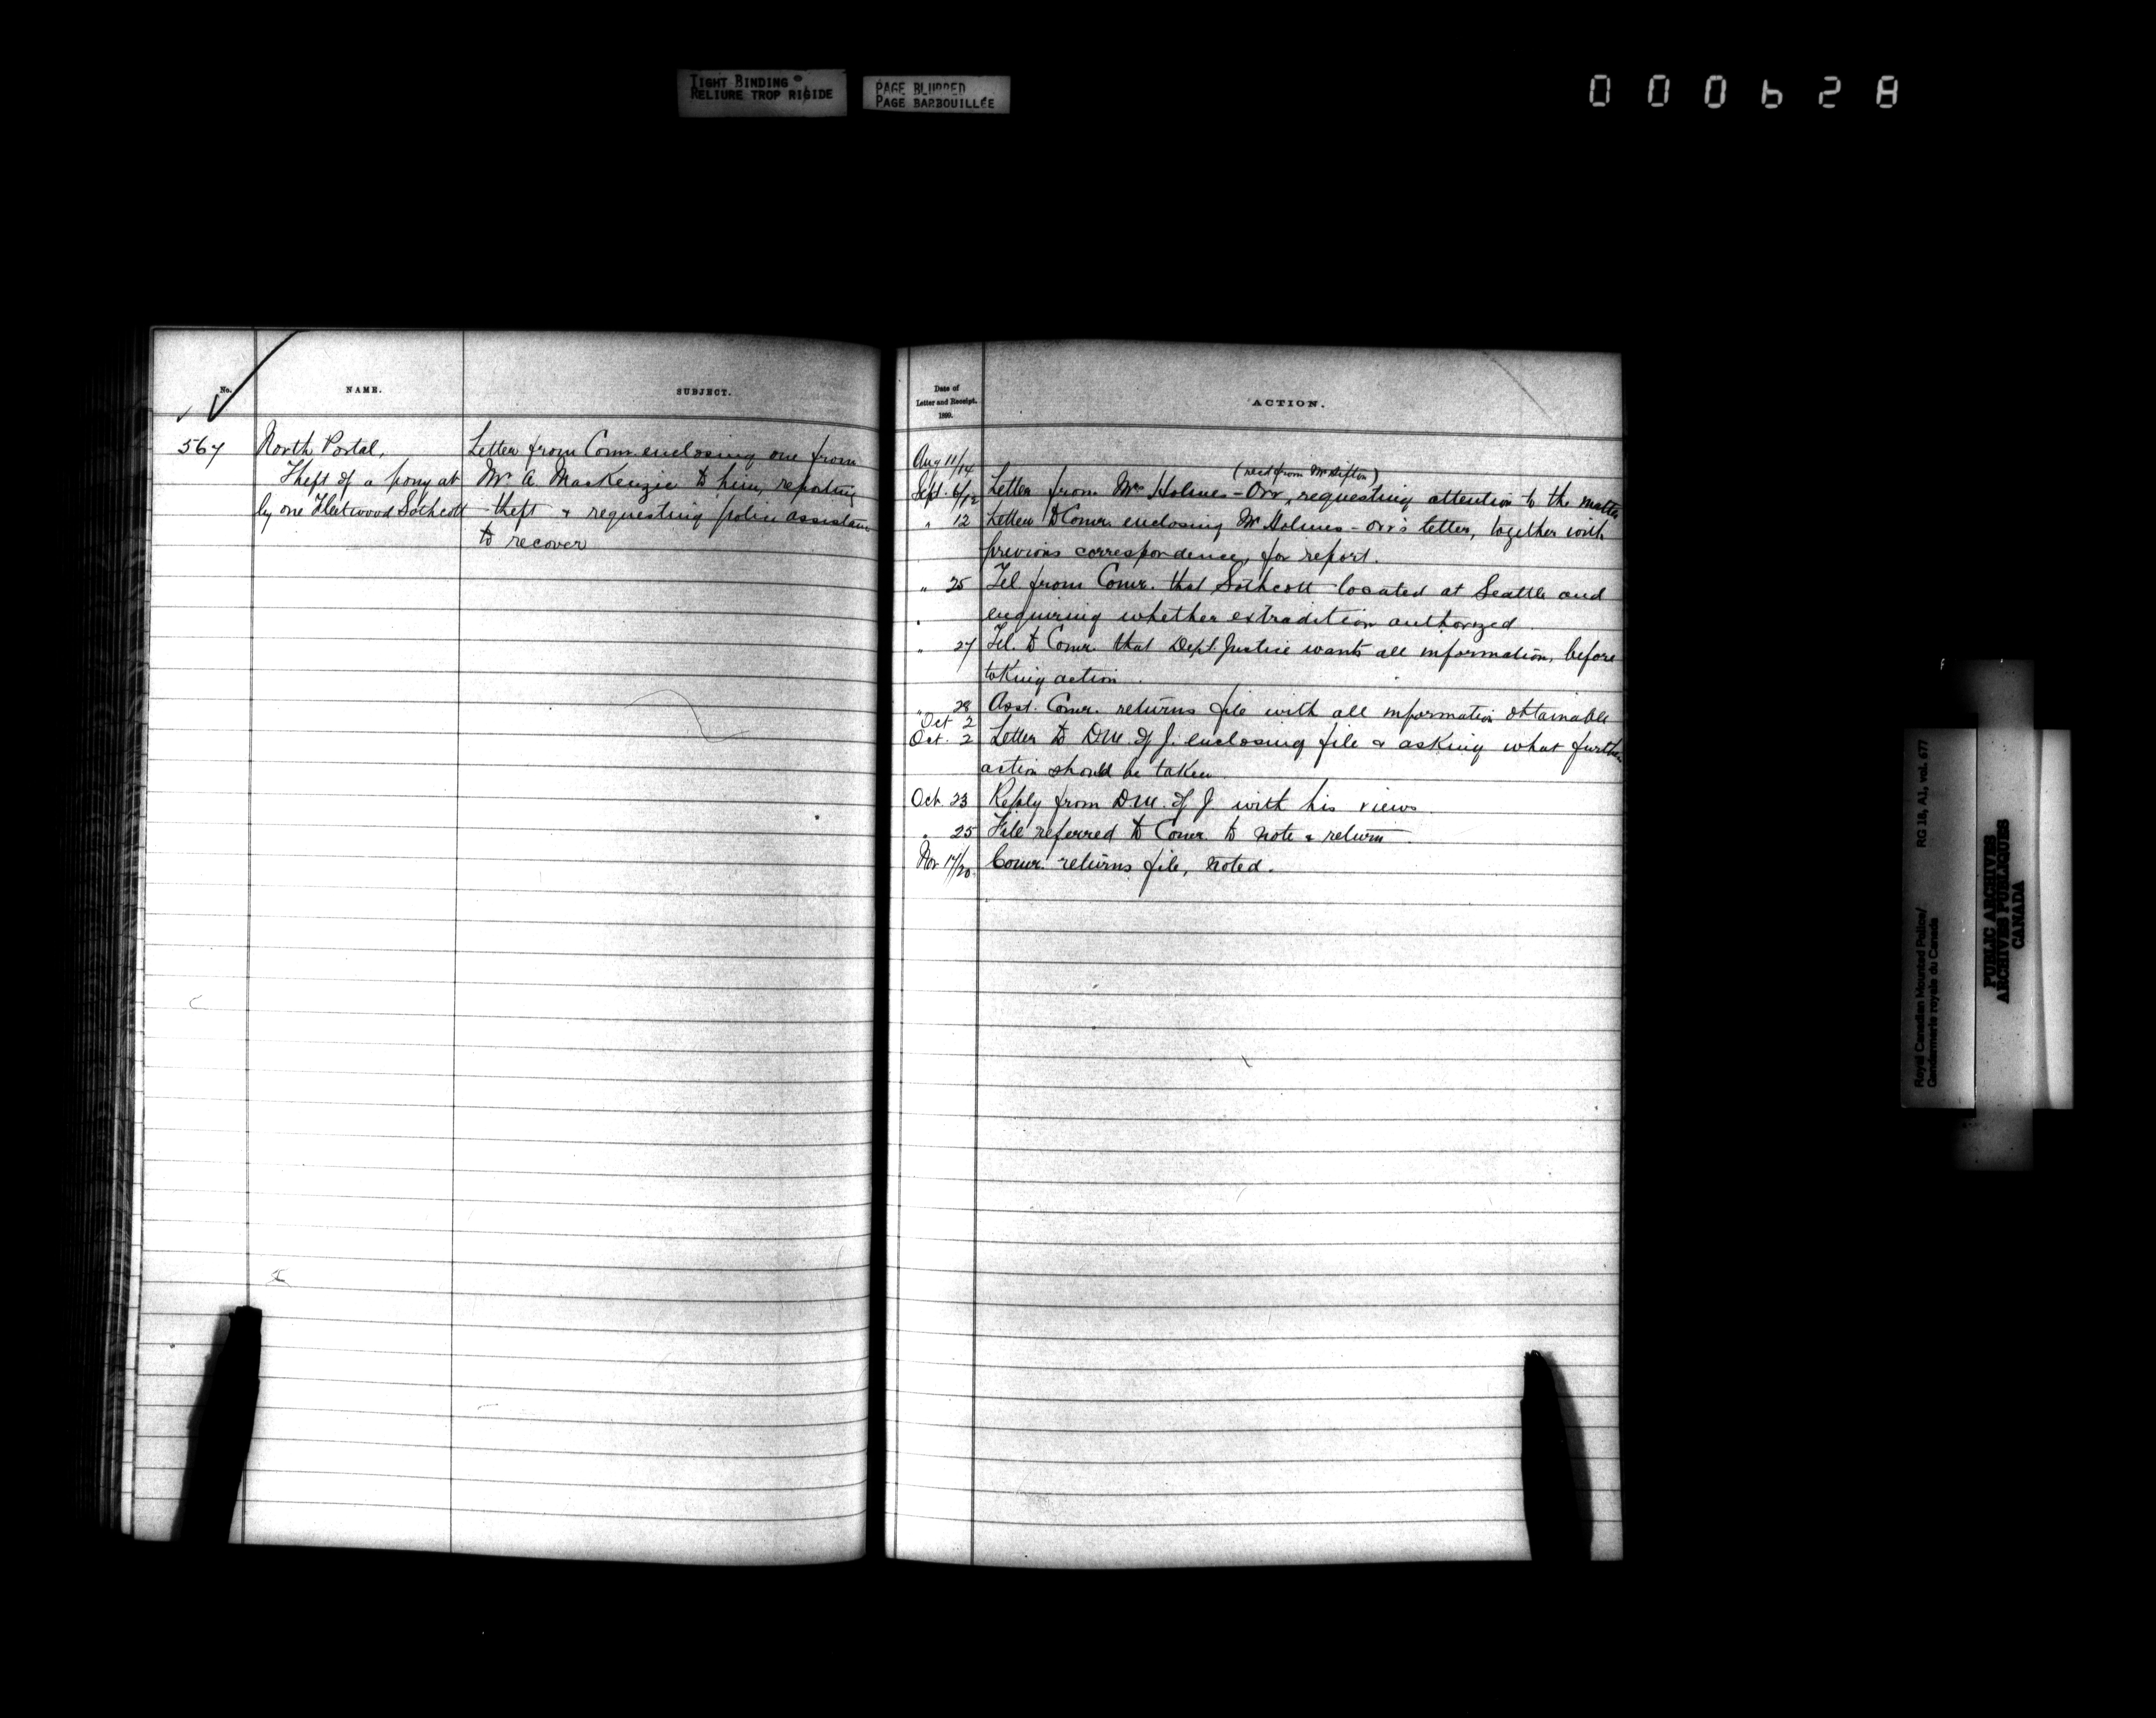 TIGHT BINDING
RELIURE TROP RIGIDE
PAGE BLURRED
PAGE BARBOUILLÉE
000628
No.
NAME.
SUBJECT.
567
North Portal,
Theft of a pony at
by one Fleetwood Sothcott
Letter from Comr. enclosing one from
Mr. A. MacKenzie to him, reporting
theft & requesting police assistance
to recover
Date of
Letter and Receipt.
1899.
ACTION.
Aug 11/14
(recd from Mr Sifton)
Sept. 6/12 Letter from Mrs Holmes-Orr, requesting attention to the matter
" 12 Letter to Comr. enclosing Mrs Holmes-Orr's letter, together with
previous correspondence, for report.
" 25 Tel from Comr. that Sothcott located at Seattle and
enquiring whether extradition authorized.
" 27 Tel. to Comr. that Dept. Justice wants all information, before
taking action.
" 28
Oct 2 Asst. Comr. returns file with all information obtainable
Oct. 2 Letter to D.M. of J. enclosing file & asking what further
action should be taken.
Oct. 23 Reply from D.M. of J. with his views.
" 25 File referred to Comr. to note & return.
Nov 17/20. Comr. returns file, noted.
Royal Canadian Mounted Police/
Gendarmerie royale du Canada
RG 18, A1, vol. 677
PUBLIC ARCHIVES
ARCHIVES PUBLIQUES
CANADA